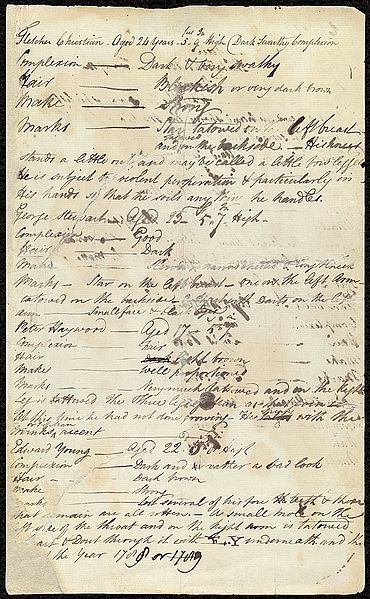 Fletcher Christian. Aged 24 Years 5.9 High Dark Swarthy Complexion
Complexion — Dark & very swarthy
Hair — Blackish or very dark brown
Make — Strong
Marks — Star tatowed on the left breast
and on the backside — His knees
stands a little out and may be called a little bow legged
He is subject to violent perspiration & particularly in
His hands so that he soils any thing he handles.
George Stewart — Aged 23 5.7 High —
Complexion — Good
Hair — Dark
Make — Slender & narrow chested & long
Marks — Star on the left breast — one on the left Arm —
tatowed on the backside — Darts on the left
arm — Small face &
Peter Haywood — Aged 17 — 5.7
Complexion — Fair
Hair — brown
Make — Well proportioned
Marks — Very much tatowed and on the Right
Leg is tattowed the Three Legs of Man as
At this time he had not done growing — He with the
accent
Edward Young — Aged 22 5. High
Complexion — Dark and rather a bad look
Hair — Dark brown
Make — Strong
Marks — Lost several of his fore teeth & those
that remain are all rotten — a Small mole on the
left side of the throat and on the right arm is tatowed
Heart & Dart through it with E.Y underneath and the
the Year 1788 or 1789